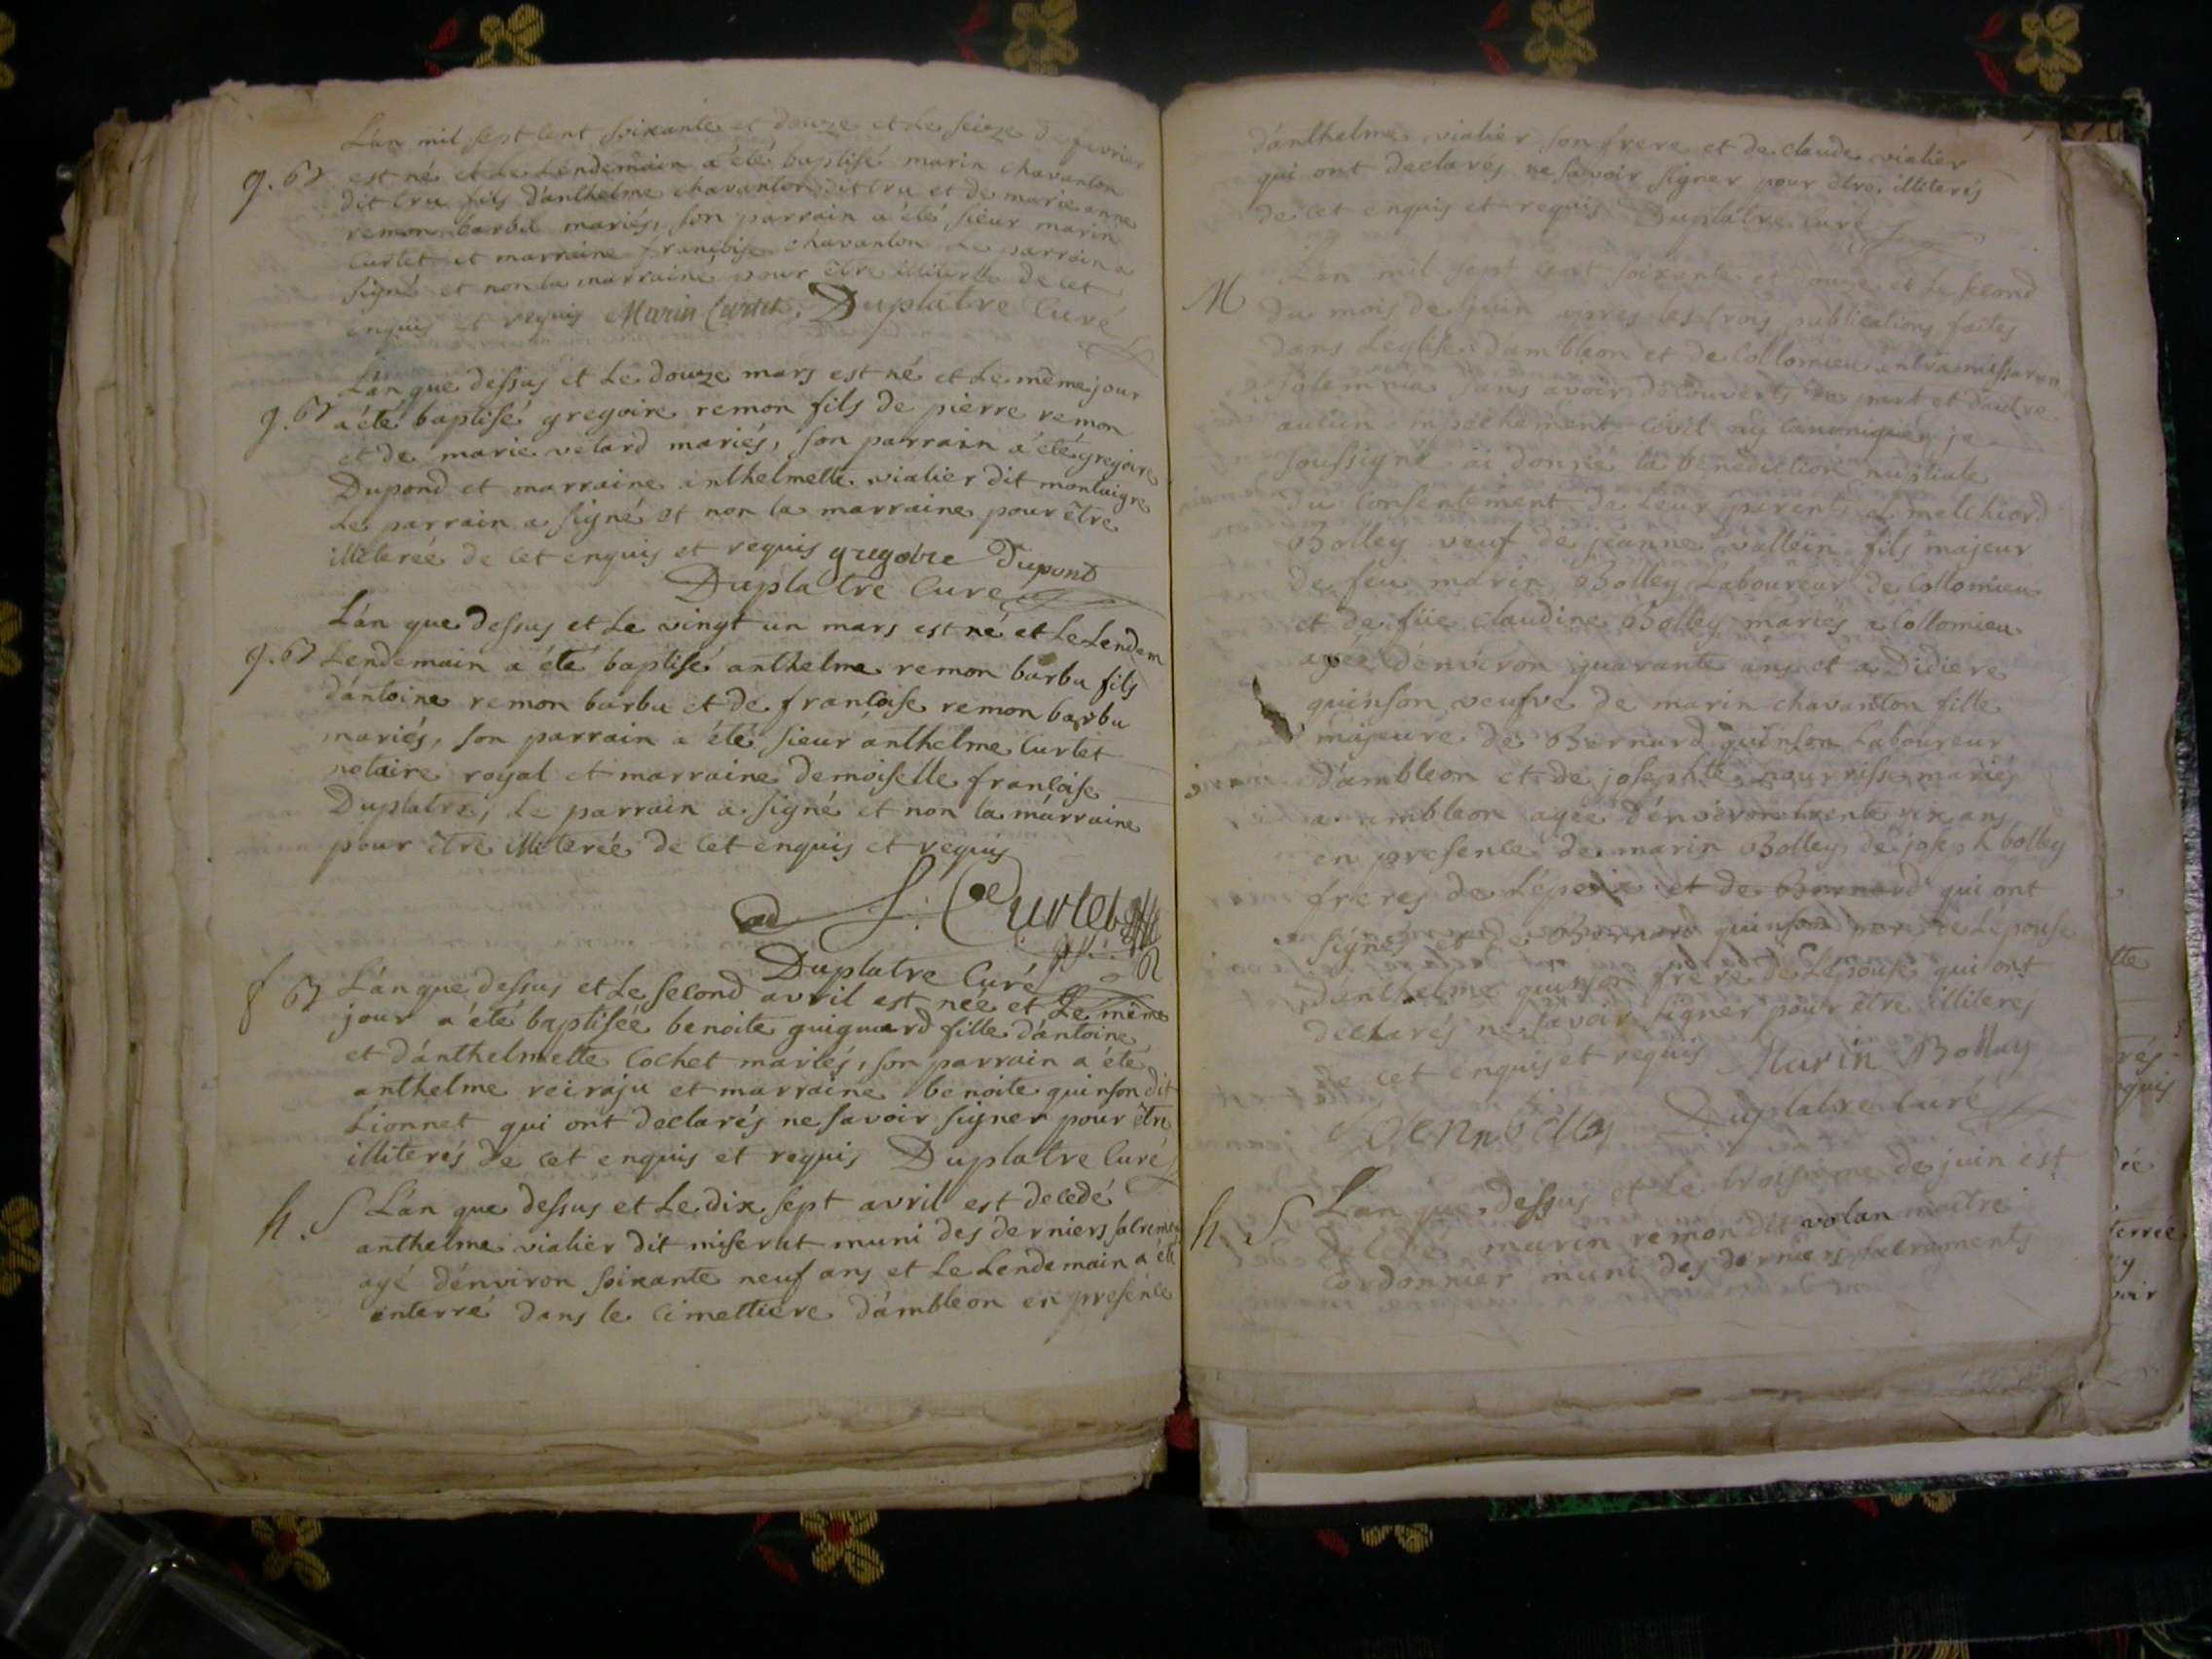 Lán mil sept cent soixante et douze et le seize de fevrier
g. bt est né et le Lendemain a été baptisé marin chavanton
dit cru fils dánthelme chavanton dit cru et de marie anne
remon barbu mariés, son parrain a été sieur marin
Curtet et marraine françoise chavanton Le parrain a
signé et non la marraine pour être illiterée de cet
enquis et requis Marin Curtet, Duplatre Curé
Lán que dessus et Le douze mars est né et Le même jour
g. bt a été baptisé gregoire remon fils de pierre remon
et de marie velard mariés, son parrain a été gregoire
Dupond et marraine anthelmette vialier dit montaigre
Le parrain a signé et non la marraine pour être
illiterée de cet enquis et requis gregoire Dupont
Duplatre Curé
Lán que dessus et Le vingt un mars est né et Le Lendem
g. bt Lendemain a été baptisé anthelme remon barbu fils
dántoine remon barbu et de françoise remon barbu
mariés, son parrain a été sieur anthelme Curtet
notaire royal et marraine demoiselle françoise
Duplatre, Le parrain a signé et non la marraine
pour être illiterée de cet enquis et requis
Curtet
Duplatre Curé
f bt Lán que dessus et Le second avril est née et Le même
jour a été baptisée benoite guiguard fille dántoine
et dánthelmette Cochet mariés, son parrain a été
anthelme reiraju et marraine benoite quinson dit
Lionnet qui ont declarés ne savoir signer pour être
illiterés de cet enquis et requis Duplatre Curé
h. S Lán que dessus et Le dix sept avril est decedé
anthelme vialier dit miserat muni des derniers sacremens
agé dénviron soixante neuf ans et Le Lendemain a été
enterré dans le cimettiere dámbleon en presence
dánthelme vialier son frere et de claude vialier
qui ont declarés ne savoir signer pour être illiterés
de cet enquis et requis Duplatre Curé
Lán mil sept cent soixante et douze et Le second
M du mois de juin apres les trois publications faites
dans Leglise dámbleon et de Collomieu intra missarum
solemnia sans avoir découverts de part et dautre
aucun empechement civil ny canonique je
soussigné ai donné la benediction nuptiale
du consentement de Leur parents a melchiord
Bolley veuf de jeanne vallein fils majeur
de feu marin Bolley Laboureur de Collomieu
et de füe claudine Bolley mariés a Collomieu
agée dénviron quarante ans et a Didiere
quinson veufve de marin chavanton fille
majeure de Bernard quinson Laboureur
dámbleon et de josephte nourrisse mariés
a ambleon agée dénviron trente six ans
en presence de marin Bolley, de joseph bolley
freres de Lépoux et de Bernard qui ont
signés et de Bernard quinson pere de Lépouse
dánthelme quinson frere de Lépouse qui ont
declarés ne savoir signer pour être illiterés
de cet enquis et requis Marin Bollay
Duplatre curé
h S Lán que dessus et Le troisieme de juin est
decedé marin remon dit volan maitre
Cordonnier muni des derniers sacraments